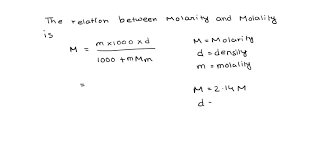 The relation between Molarity and Molality
is
M = m×1000×d / 1000 + mMm
M = Molarity
d = density
m = molality
=
M = 2.14 M
d -